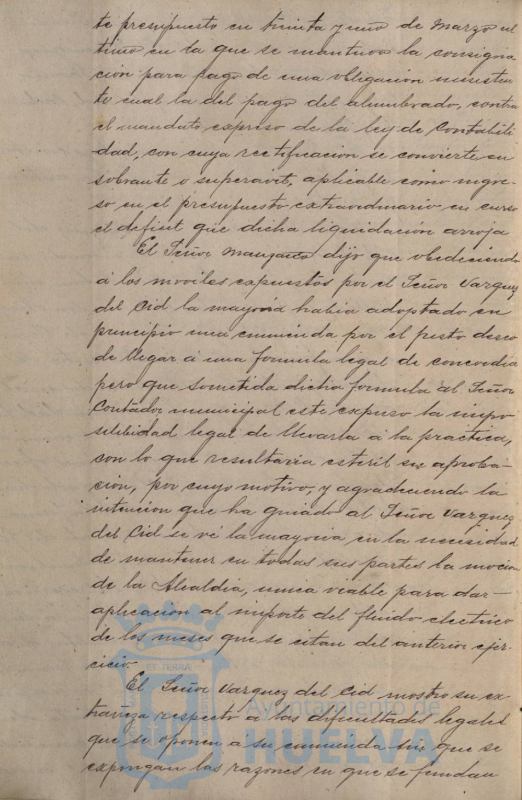 te presupuesto en treinta y uno de Marzo ul
timo en la que se mantuvo la consigna
cion para pago de una obligacion inexisten
te cual la del pago del alumbrado, contra
el mandato expreso de la ley de Contabili
dad, con cuya rectificacion se convierte en
sobrante o superavit, aplicable como ingre-
so en el presupuesto extraordinario en curso
el deficit que dicha liquidación arroja
El Señor Manzano dijo que obedeciendo
á los moviles expuestos por el Señor Vazquez
del Cid la mayoria habia adoptado en
principio una enmienda por el justo deseo
de llegar á una formula legal de concordia
pero que sometida dicha formula al Señor
Contador municipal este expuso la impo
sibilidad legal de llevarla á la practica,
con lo que resultaria esteril su aproba-
cion, por cuyo motivo, y agradeciendo la
intencion que ha guiado al Señor Vazquez
del Cid se vé la mayoria en la necesidad
de mantener en todas sus partes la mocion
de la Alcaldia, unica viable para dar-
aplicacion al importe del fluido electrico
de los meses que se citan del anterior ejer-
cicio.
El Señor Vazquez del Cid mostro su ex
trañeza respecto a las dificultades legales
que se oponen a su enmienda sin que se
expongan las razones en que se fundan
ET TERRÆ
Ayuntamiento de
HUELVA